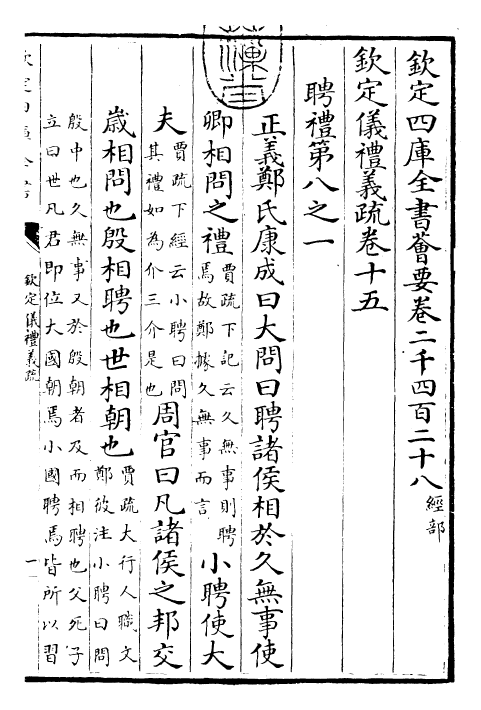 欽定四庫全書薈要卷二千四百二十八 經部
欽定儀禮義疏卷十五
聘禮第八之一
正義鄭氏康成曰大問曰聘諸侯相於久無事使
卿相問之禮 賈疏下記云久無事則聘
焉故鄭據久無事而言 小聘使大
夫 賈疏下經云小聘曰問
其禮如為介三介是也 周官曰凡諸侯之邦交
歲相問也殷相聘也世相朝也 賈疏大行人職文
鄭彼注小聘曰問
殷中也久無事又於殷朝者及而相聘也父死子
立曰世凡君即位大國朝焉小國聘焉皆所以習
欽定儀禮義疏
一